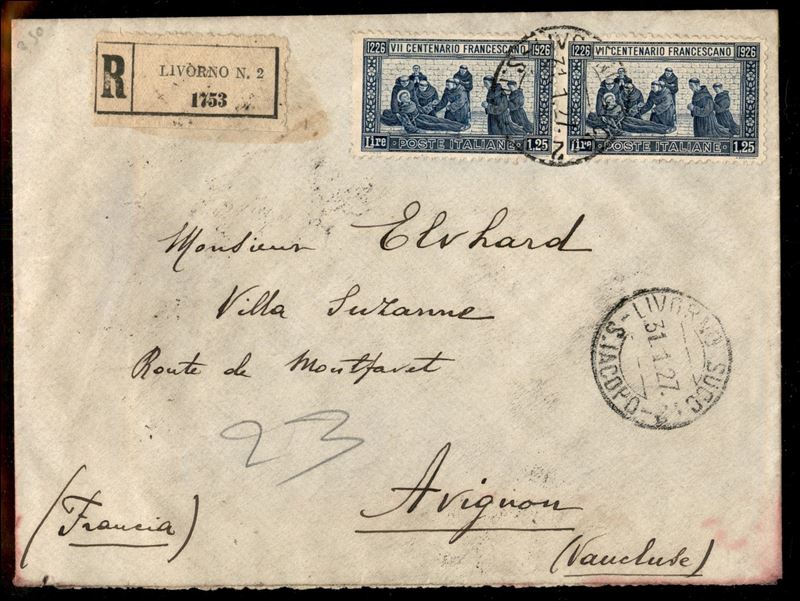 3,50
R
LIVORNO N. 2
1753
1226 VII CENTENARIO FRANCESCANO 1926
Lire POSTE ITALIANE 1,25
1226 VII CENTENARIO FRANCESCANO 1926
Lire POSTE ITALIANE 1,25
Monsieur Elvhard
Villa Suzanne
Route de Montfavet
LIVORNO SUCC. 2
31.1.27.
S. IACOPO
23
Avignon
(Francia)
(Vaucluse)